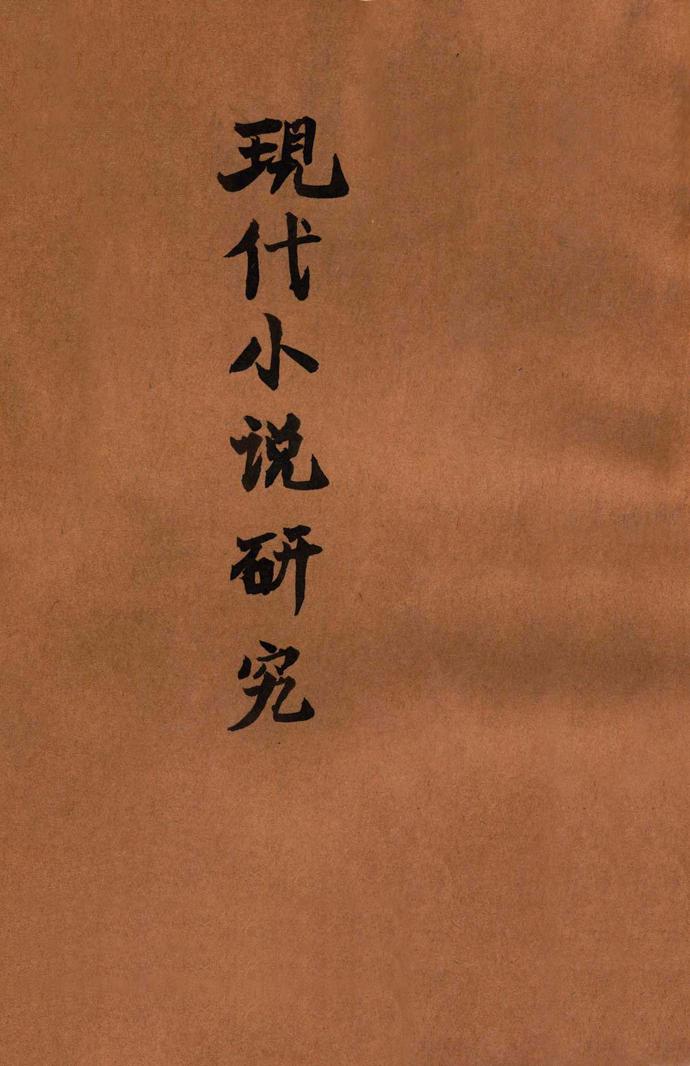 現代小说研究